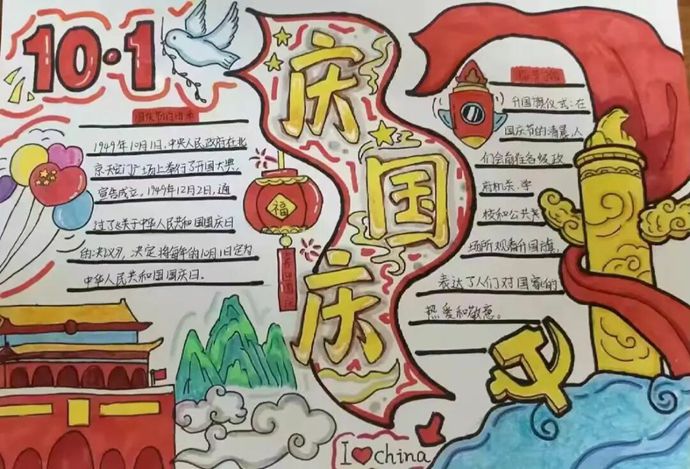 10·1
国庆节的由来
1949年10月1日,中央人民政府在北
京天安门广场上举行了开国大典,
宣告成立。1949年12月2日,通
过了《关于中华人民共和国国庆日
的决议》,决定将每年的10月1日定为
中华人民共和国国庆日。
庆国庆
福
升国旗仪式:在
国庆节的清晨人
们会前往各级政
府机关、学
校和公共
场所观看升国旗,
表达了人们对国家的
热爱和敬意。
I❤china